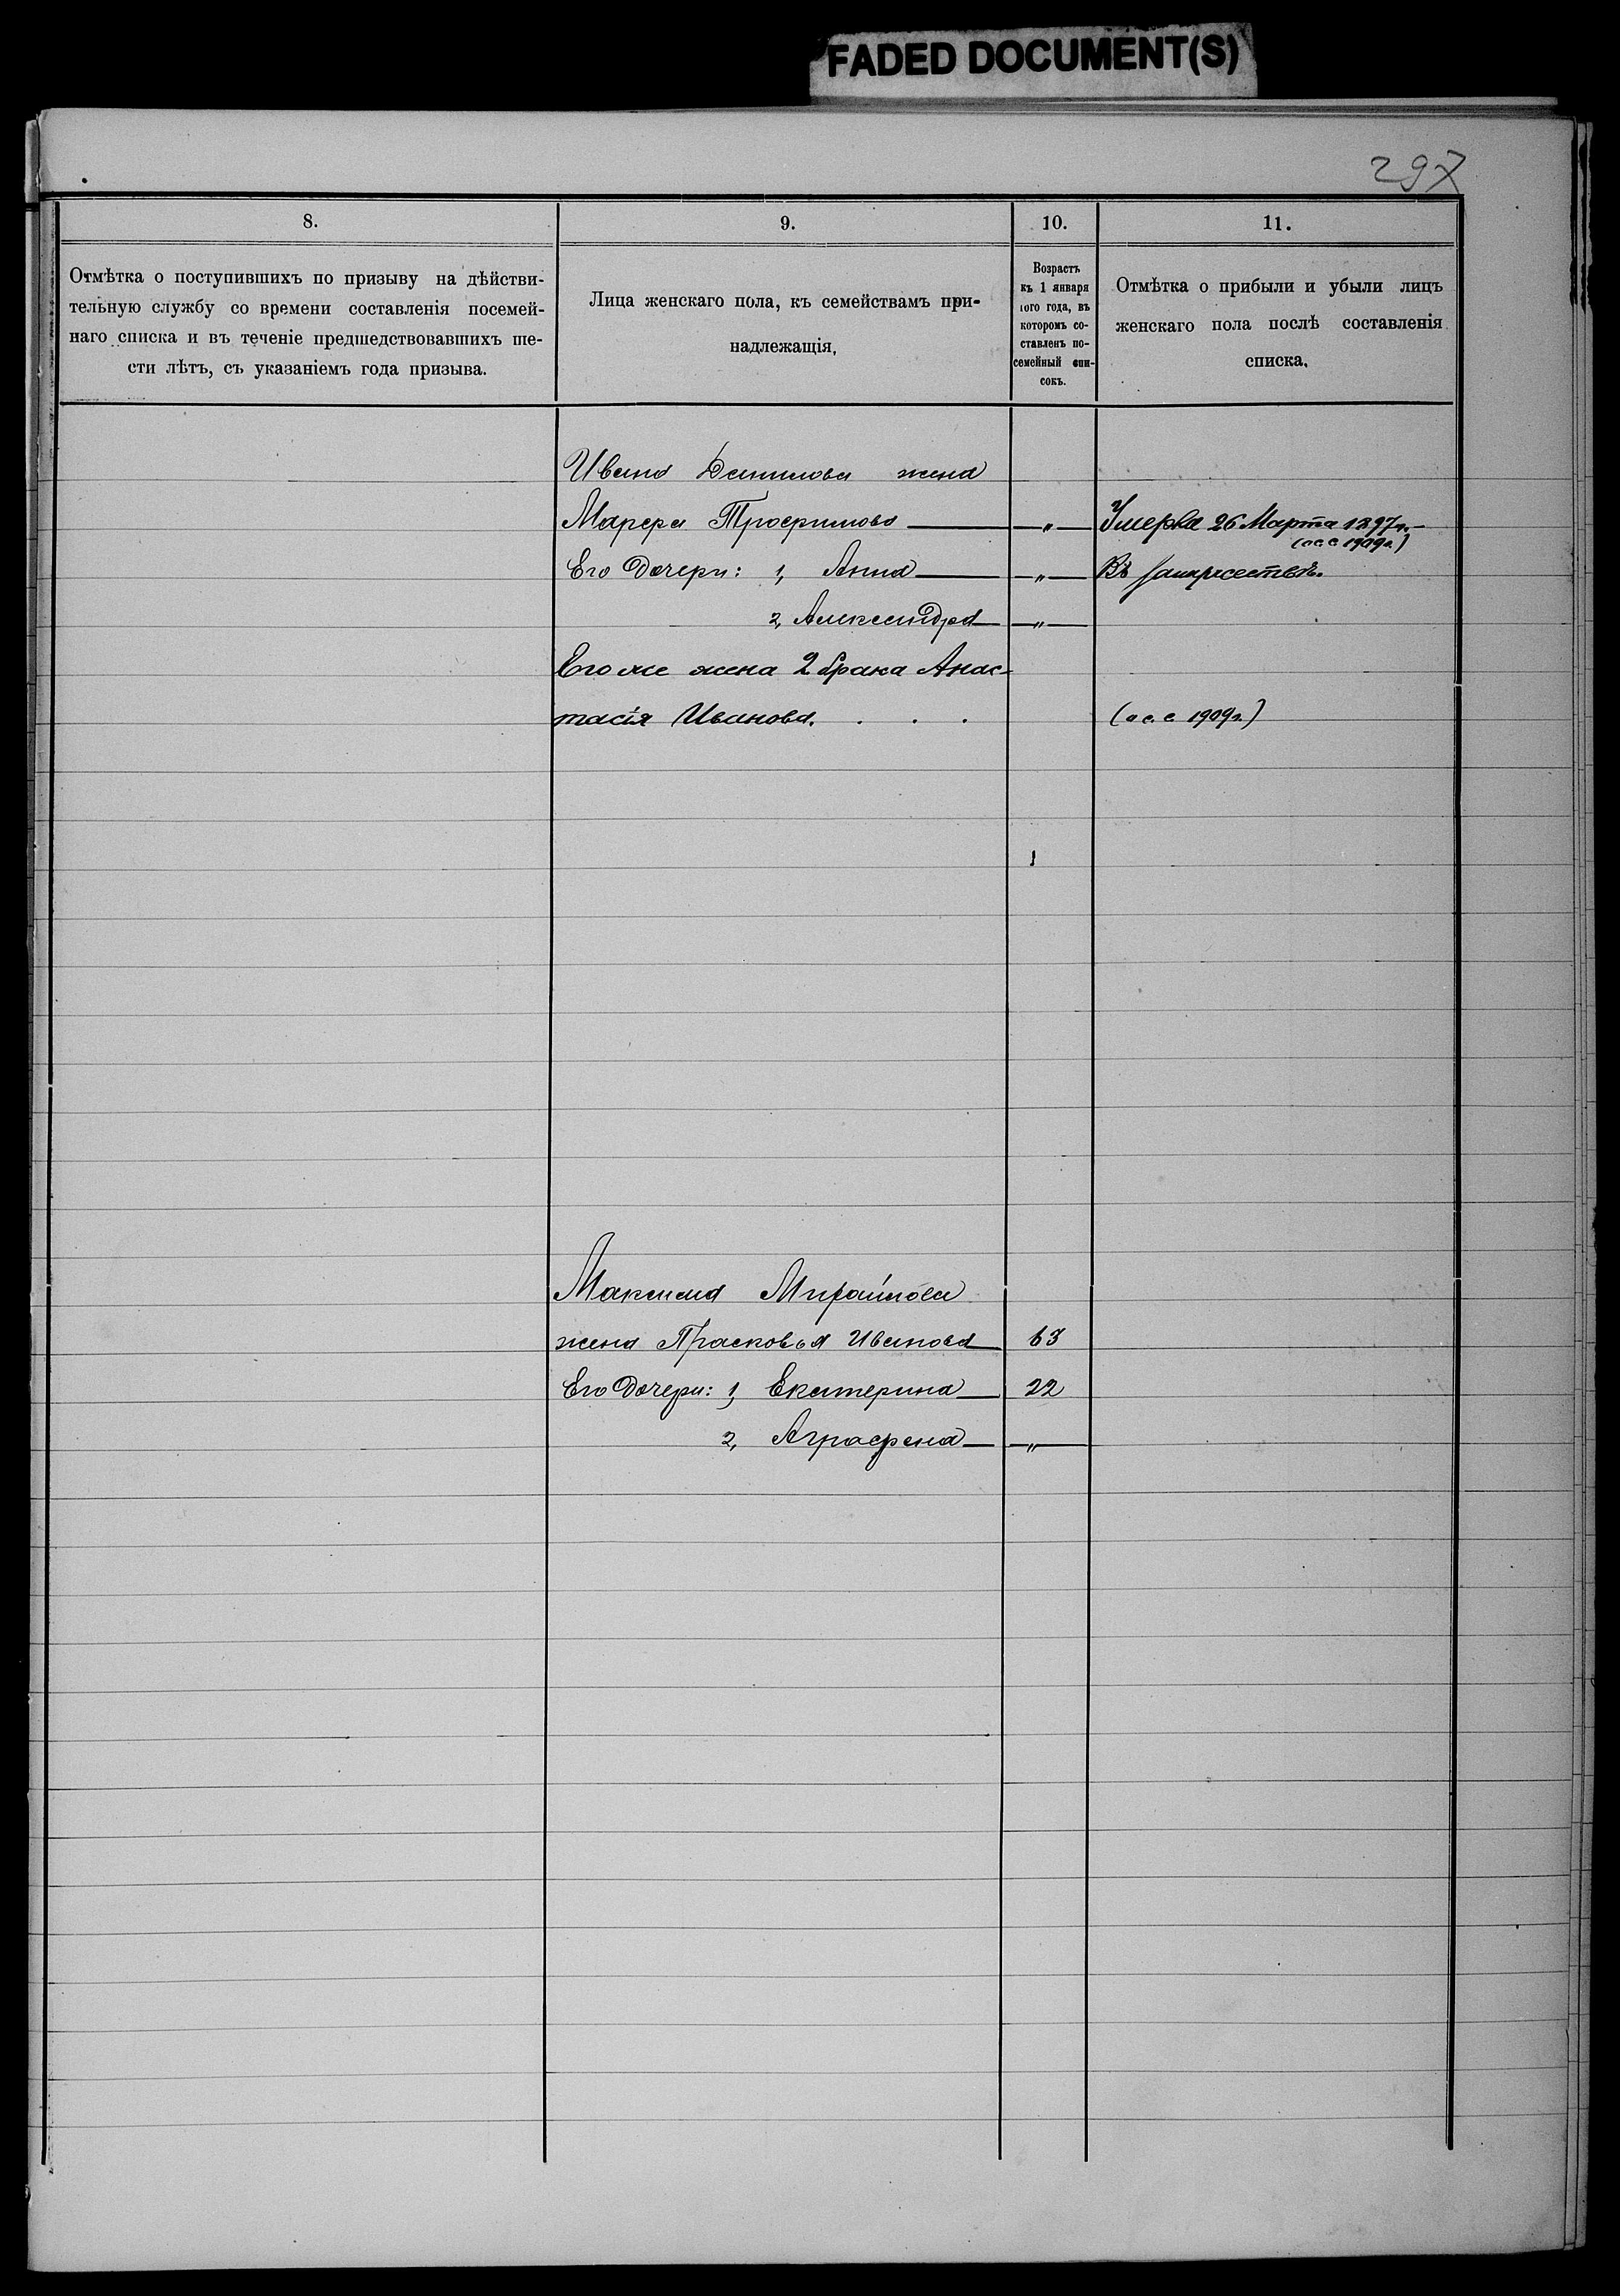 FADED DOCUMENT(S)
297
8.
9.
10.
11.
Отмѣтка о поступившихъ по призыву на дѣйстви-
тельную службу со времени составленія посемей-
наго списка и въ теченіе предшедствовавшихъ ше-
сти лѣтъ, съ указаніемъ года призыва.
Лица женскаго пола, къ семействамъ при-
надлежащія.
Возрастъ
къ 1 января
того года, въ
которомъ со-
ставленъ по-
семейный спи-
сокъ.
Отмѣтка о прибыли и убыли лицъ
женскаго пола послѣ составленія
списка.
Ивана Данилова жена
Марѳа Трофимова — „ — Умерла 26 Марта 1897г.-
(о с. с 1909г.)
Его дочери: 1, Анна — „ — Въ замужествѣ.
2, Александра — „ —
Его же жена 2 брака Анас-
тасія Иванова. . . . (о с. с 1909г.)
Максима
жена Прасковья Иванова 63
Его дочери: 1, Екатерина 22
2, Аграфена — „ —